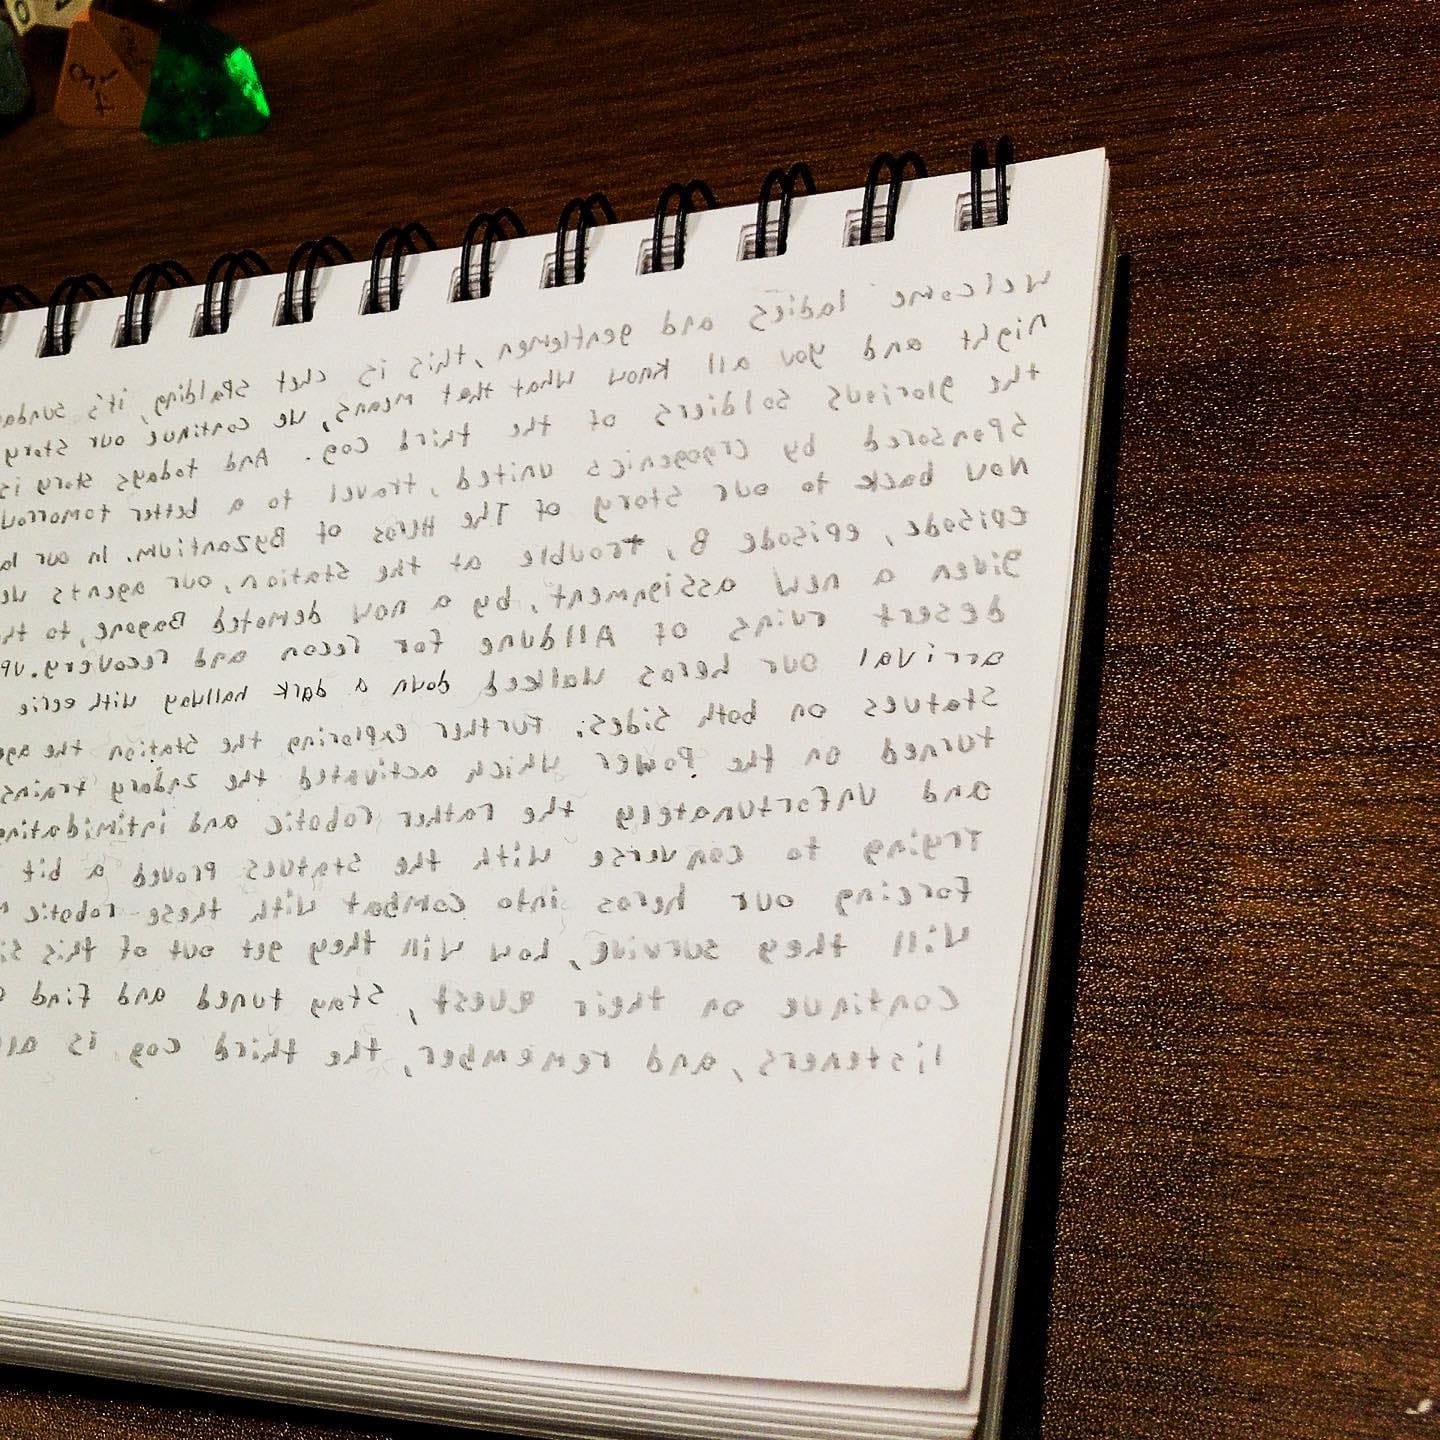 Welcome ladies and gentlemen, this is chet spalding, it's sunda
night and you all know what that means, we continue our story
the glorious soldiers of the third cog. And todays story is
sponsored by cryogenics united, travel to a better tomorrow
Now back to our story of The Heros of Byzantium. In our la
episode, episode 8, trouble at the station, our agents we
given a new assignment, by a now demoted Bagone, to th
desert ruins of Alldune for recon and recovery. up
arrival our heros walked down a dark hallway with eerie
statues on both sides; further exploring the station the age
turned on the power which activated the trains
and unfortunately the rather robotic and intimidating
Trying to converse with the statues proved a bit
forcing our heros into combat with these robotic
Will they survive, how will they get out of this si
continue on their quest, stay tuned and find
listeners, and remember, the third cog is